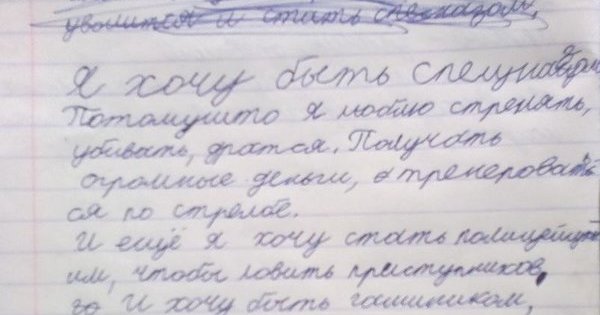 уволится и стать спецназом,
Я хочу быть спецназом
Потомушто я люблю стрелять,
убивать, дратся. Получать
огромные деньги, тренероватъ
ся по стрелбе.
И ещё я хочу стать полицейским
им, чтобы ловить приступников,
И хочу быть гаишником,